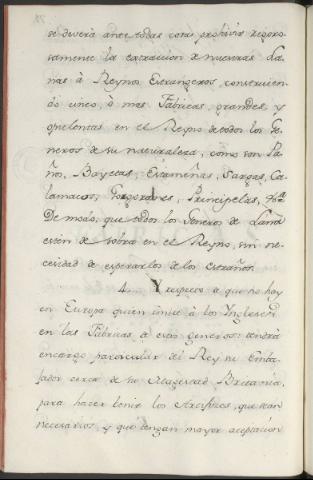 se deverà ante todas cosas prohivir rigoro-
samente la extraccion de nuestras La-
nas à Reynos Extrangeros, construien-
do cinco, ò mas Fabricas, grandes, y
opulentas en el Reyno de todos los Ge-
neros de su naturaleza, como son Pa-
ños, Bayetas, Estameñas, Sargas, Ca-
lamacos, Principelas, &ca
De modo, que todos los Generos de Lana
esten de sobra en el Reyno, sin ne-
cesidad de esperarlos de los estraños.
4. Y respecto a que no hay
en Europa quien imite à los Ingleses
en las Fabricas de estos generos: tendrà
encargo particular del Rey su Emba-
jador cerca de su Magestad Britania,
para hacer benir los Artifices, que sean
necesarios, y que tengan mayor aceptacion